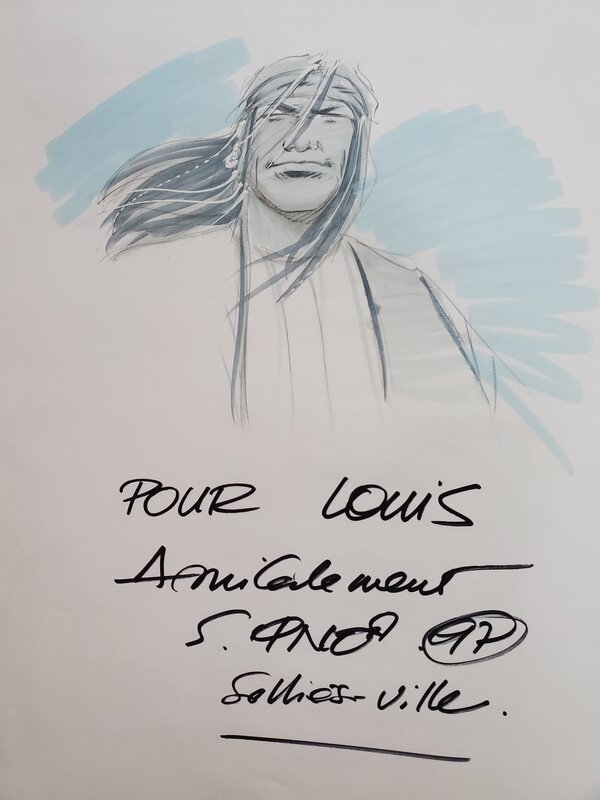 POUR LOUIS
Amicalement
S. FINO 97
Solliès-ville.